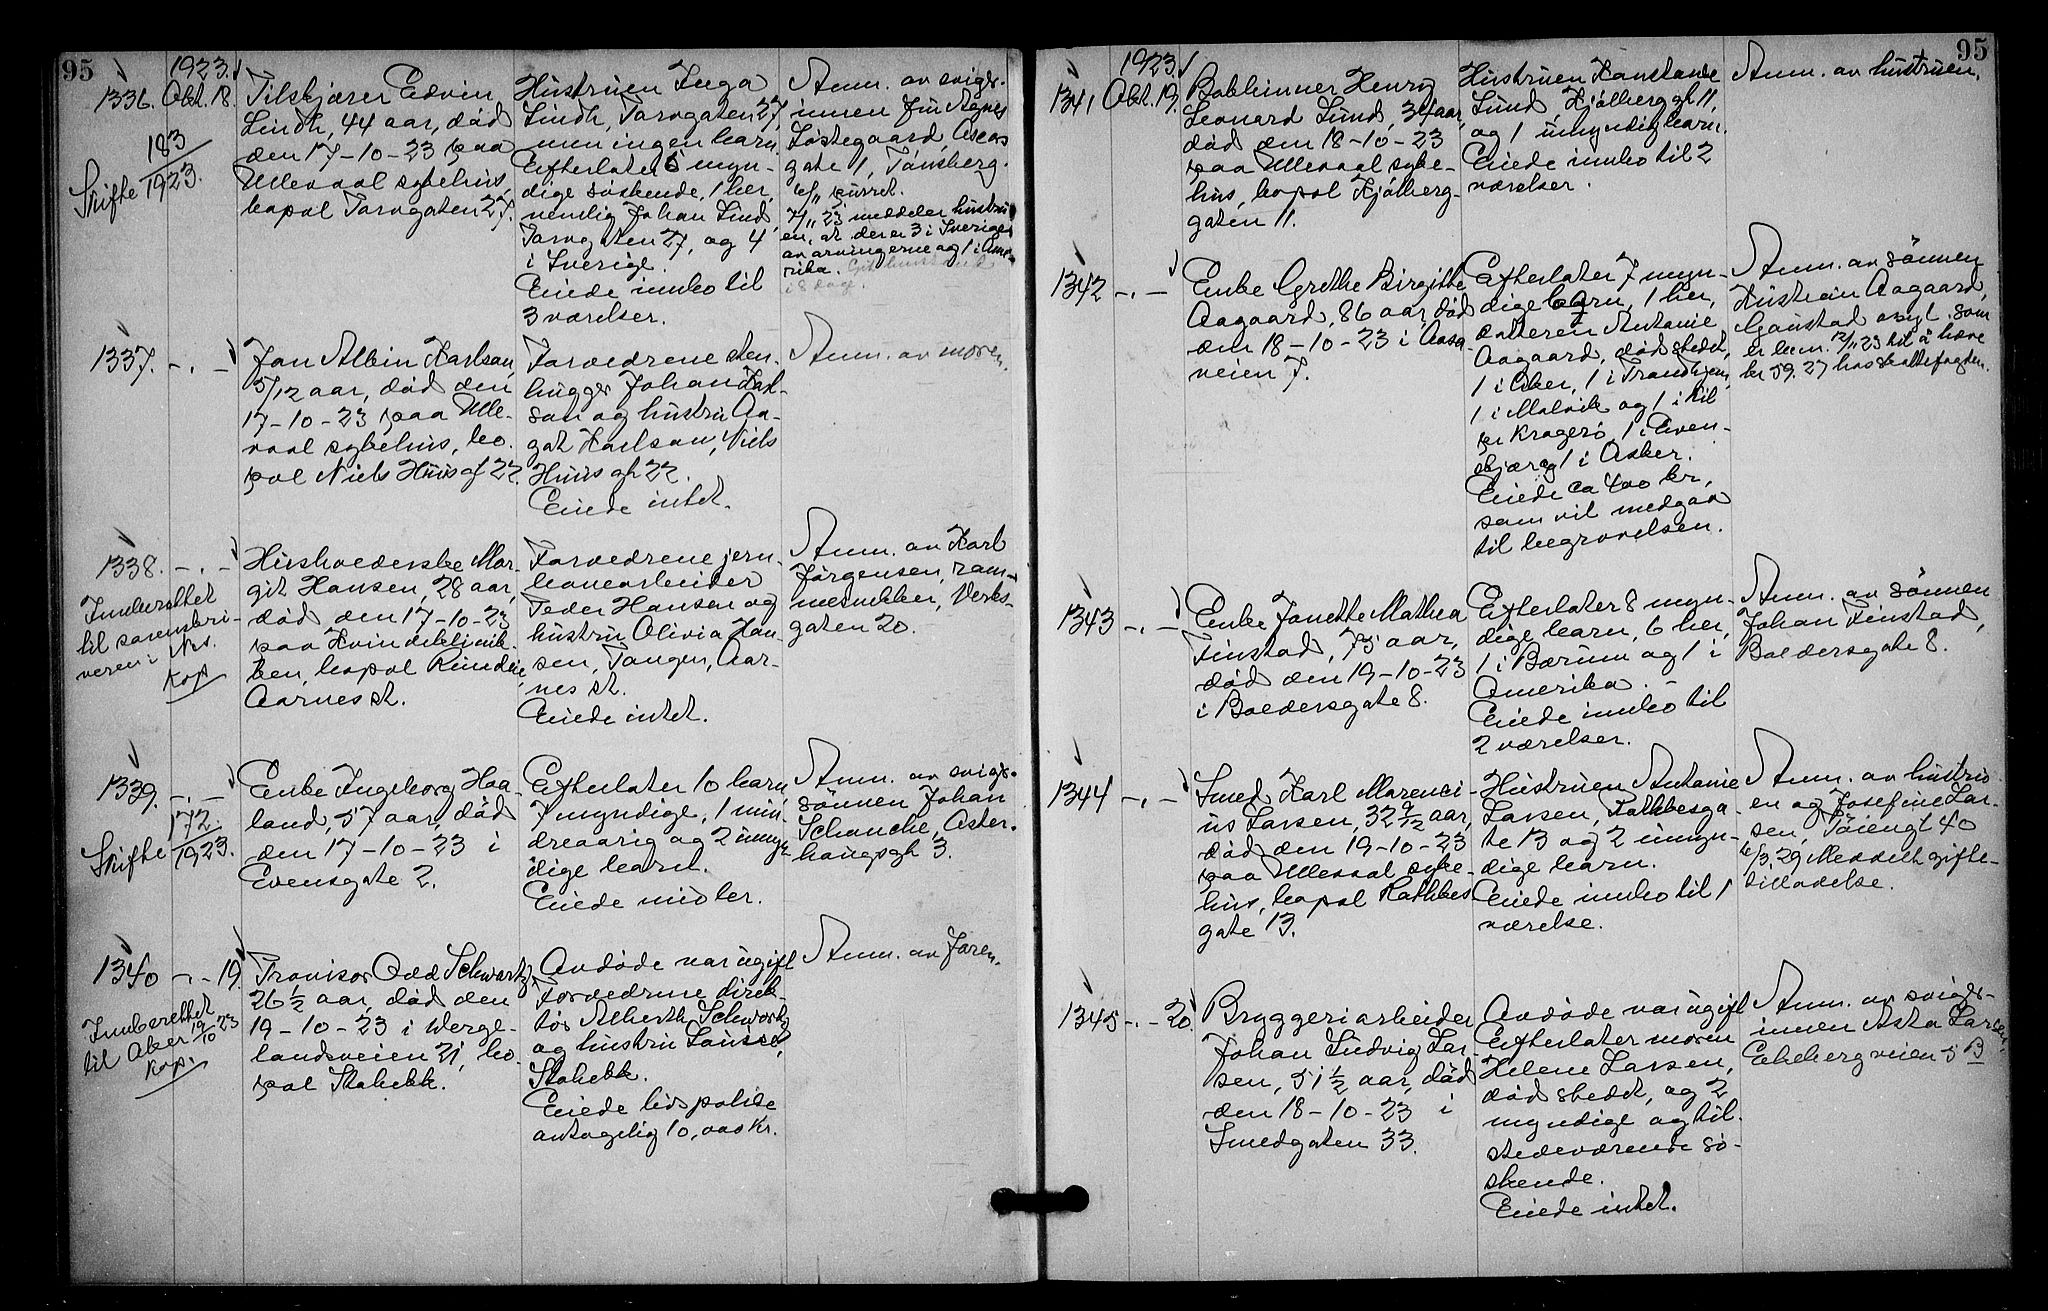 95
1923.
1336. Okt. 18.
183
Skifte 1923.
Tilskjærer Edvin
Lindh, 44 aar, død
den 17-10-23 paa
Ullevaal sykehus,
bopæl Torvgaten 27.
Hustruen Inga
Lindh, Torvgaten 27,
men ingen barn.
Efterlater 5 myn-
dige søskende, 1 her,
nemlig Johan Lind
Torvgaten 27, og 4
i Sverige.
Eiede innbo til
3 værelser.
Anm. av sviger-
innen Agnes
gate 1, Tønsberg.
6/11 purret.
7/11 23 meddeler hustru
en, at der er 3 i Sverige
av arvingerne og 1 i Ame-
rika.
i 8 dag.
1337. -.-
Jan Albin Karlson,
5/12 aar, død den
17-10-23 paa Ulle-
vaal sykehus, bo-
pæl Niels Huus gt 22.
Forældrene sten-
hugger Johan Karl-
son og hustru Aa-
got Karlson, Niels
Huus gt 22.
Eiede intet.
Anm. av moren.
1338. -.-
Innberettet
til sorenskri-
veren i Nes.
Kop.
Husholderske Mar-
git Hansen, 28 aar,
død den 17-10-23
paa Kvindeklinik-
ken, bopæl Runden,
Aarnes st.
Forældrene jern-
banearbeider
Peder Hansen og
hustru Olivia Han-
sen, Tangen, Aar-
nes st.
Eiede intet.
Anm. av Karl
Jørgensen, ram-
mesnekker, Verks-
gaten 20.
1339. -.-
172
Skifte 1923.
Enke Ingeborg Haa-
land, 57 aar, død
den 17-10-23 i
Evensgate 2.
Efterlater 10 barn,
7 myndige, 1 min-
dreaarig og 2 umyn-
dige barn.
Eiede midler.
Anm. av sviger-
sønnen Johan
Schanche, Aker-
haugsgt 3.
1340 -.- 19.
Innberettet
til Aker 19/10 23
Kop.
Provisor Odd Schwartz,
26 1/2 aar, død den
19-10-23 i Werge-
landsveien 21, bo-
pæl Stabekk.
Avdøde var ugift
Forældrene direk-
tør Alberth Schwartz
og hustru Louise,
Stabekk.
Eiede livspolise
antagelig 10,000 Kr.
Anm. av faren.
95
1923.
1341 Okt. 19.
Bokbinner Henry
Leonard Lund, 34 aar,
død den 18-10-23
paa Ullevaal syke-
hus, bopæl Kjølberg-
gaten 11.
Hustruen Konstanse
Lund, Kjølberggt 11,
og 1 umyndig barn.
Eiede innbo til 2
værelser.
Anm. av hustruen.
1342 -.-
Enke Grethe Birgitte
Aagaard, 86 aar, død
den 18-10-23 i Aasa-
veien 7.
Efterlater 7 myn-
dige barn, 1 her,
datteren Antonie
Aagaard, dødstedet,
1 i Aker, 1 i Trondhjem,
1 i Malvik og 1 i Kil
pr Kragerø, 1 i Even-
skjær og 1 i Asker.
Eiede ca 400 kr,
som vil medgaa
til begravelsen.
Anm. av sønnen
Kristian Aagaard,
Gaustad asyl, som
er bem. 12/11 23 til å hæve
kr 59.27 hos skattefogden.
1343 -.-
Enke Janette Mathea
Finstad, 75 aar,
død den 19-10-23
i Baldersgate 8.
Efterlater 8 myn-
dige barn, 6 her,
1 i Bærum og 1 i
Amerika. -
Eiede innbo til
2 værelser.
Anm. av sønnen
Johan Finstad,
Baldersgate 8.
1344 -.-
Smed Karl Marenci-
us Larsen, 32 9/12 aar,
død den 19-10-23
paa Ullevaal syke-
hus, bopæl Rathkes
gate 13.
Hustruen Antonie
Larsen, Rathkesga-
te 13 og 2 umyn-
dige barn.
Eiede innbo til 1
værelse.
Anm. av hustru-
en og Josefine Lar-
sen, Tøiengt 40
6/3.29 Meddelt gifte-
tilladelse.
1345 -.- 20.
Bryggeriarbeider
Johan Ludvig Lar-
sen, 51 1/2 aar, død
den 18-10-23 i
Smedgaten 33.
Avdøde var ugift
Efterlater moren
Helene Larsen,
dødstedet, og 2
myndige og til-
stedeværende sø-
skende.
Eiede intet.
Anm. av sviger-
innen Asta Larsen,
Ekebergveien 5 B